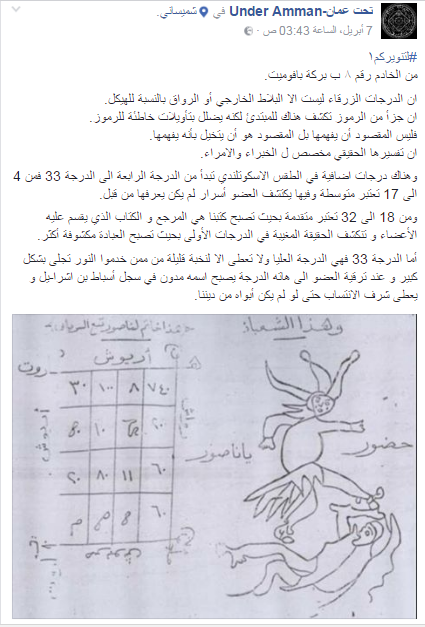 تحت عمان-Under Amman في شميساني.
7 أبريل، الساعة 03:43 ص
#لتنويركم١
من الخادم رقم ٨ ب بركة بافوميت.
ان الدرجات الزرقاء ليست الا البلاط الخارجي أو الرواق بالنسبة للهيكل.
ان جزأ من الرموز تكشف هناك للمبتدئ لكنه يضلل بتأويلات خاطئة للرموز.
فليس المقصود أن يفهمها بل المقصود هو أن يتخيل بأنه يفهمها.
ان تفسيرها الحقيقي مخصص ل الخبراء والامراء.
وهناك درجات اضافية في الطقس الاسكوتلندي تبدأ من الدرجة الرابعة الى الدرجة 33 فمن 4
الى 17 تعتبر متوسطة وفيها يكتشف العضو أسرار لم يكن يعرفها من قبل.
ومن 18 الى 32 تعتبر متقدمة بحيث تصبح كتبنا هي المرجع و الكتاب الذي يقسم عليه
الأعضاء و تنكشف الحقيقة المغيبة في الدرجات الأولى بحيث تصبح العبادة مكشوفة أكثر.
أما الدرجة 33 فهي الدرجة العليا ولا تعطى الا لنخبة قليلة من ممن خدموا النور تجلى بشكل
كبير و عند ترقية العضو الى هاته الدرجة يصبح اسمه مدون في سجل أسباط بن اشرا-يل و
يعطى شرف الانتساب حتى لو لم يكن أبواه من ديننا.
وهذا
هذا خاتم
أريوش
روت
٣٠ ١٠٠ ٨ ٧٤٠
حضور
ياناصور
١٠
٢٠ ٨٠ ١١ ٦٠
٦٠